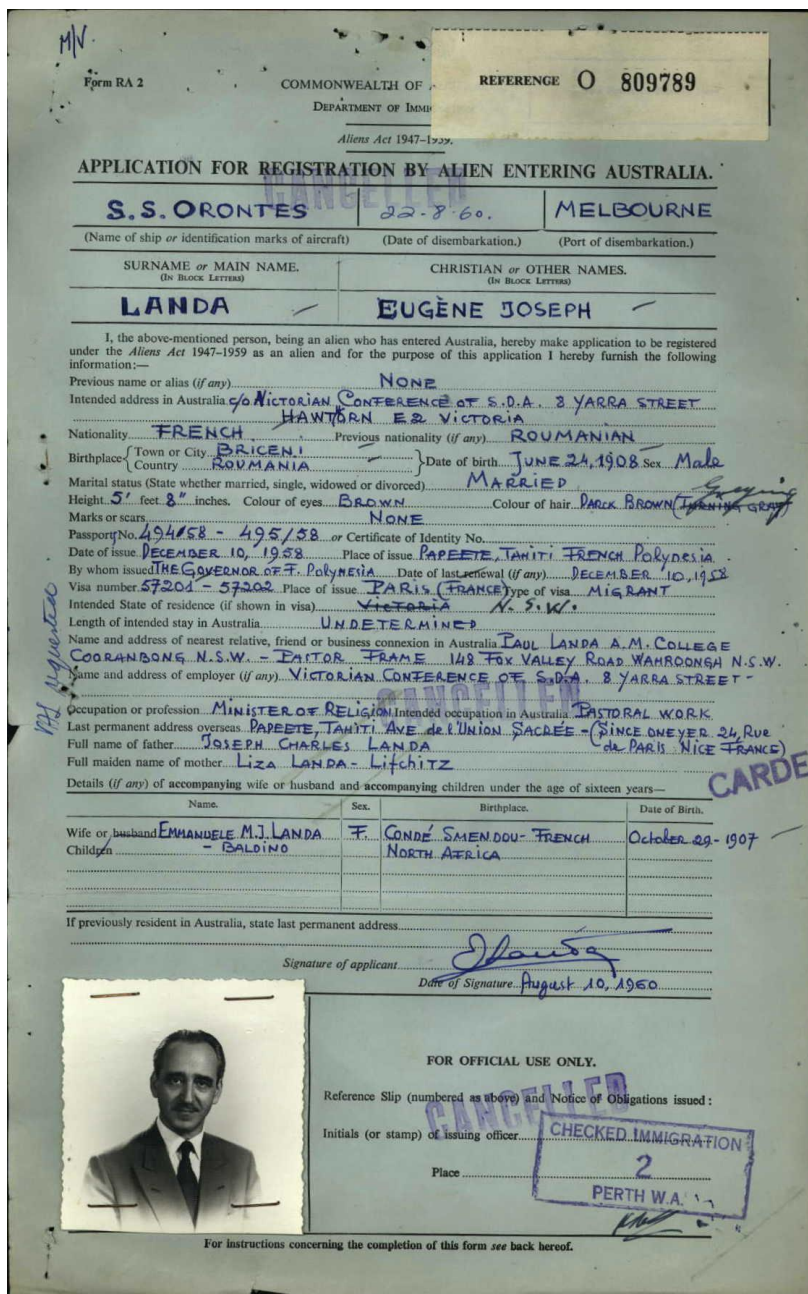 M/V.
Form RA 2
COMMONWEALTH OF
REFERENCE O 809789
DEPARTMENT OF IMMI
Aliens Act 1947–1959.
APPLICATION FOR REGISTRATION BY ALIEN ENTERING AUSTRALIA.
CANCELLED
S.S. ORONTES 22-8-60. MELBOURNE
(Name of ship or identification marks of aircraft) (Date of disembarkation.) (Port of disembarkation.)
SURNAME or MAIN NAME. CHRISTIAN or OTHER NAMES.
(IN BLOCK LETTERS) (IN BLOCK LETTERS)
LANDA EUGÈNE JOSEPH
I, the above-mentioned person, being an alien who has entered Australia, hereby make application to be registered
under the Aliens Act 1947-1959 as an alien and for the purpose of this application I hereby furnish the following
information:—
Previous name or alias (if any) NONE
Intended address in Australia c/o VICTORIAN CONFERENCE OF S.D.A. 8 YARRA STREET
HAWTORN E2 VICTORIA
Nationality FRENCH Previous nationality (if any) ROUMANIAN
Birthplace { Town or City BRICENI
Country ROUMANIA } Date of birth JUNE 24, 1908 Sex Male
Marital status (State whether married, single, widowed or divorced) MARRIED
Height 5' feet 8" inches. Colour of eyes BROWN Colour of hair DARCK BROWN (TURNING GRAY) Greying
Marks or scars NONE
Passport No. 494/58 - 495/58 or Certificate of Identity No.
Date of issue DECEMBER 10, 1958 Place of issue PAPEETE, TAHITI FRENCH Polynesia
By whom issued THE GOVERNOR OF F. Polynesia Date of last renewal (if any) DECEMBER 10, 1958
Visa number 57201 - 57202 Place of issue PARIS (FRANCE) Type of visa MIGRANT
Intended State of residence (if shown in visa) VICTORIA N.S.W.
Length of intended stay in Australia UNDETERMINED
Name and address of nearest relative, friend or business connexion in Australia PAUL LANDA A.M. COLLEGE
COORANBONG N.S.W. - PASTOR FRAME 148 FOX VALLEY ROAD WAHROONGH N.S.W.
Name and address of employer (if any) VICTORIAN CONFERENCE OF S.D.A. 8 YARRA STREET -
CANCELLED
requested
Occupation or profession MINISTER OF RELIGION Intended occupation in Australia PASTORAL WORK
Last permanent address overseas PAPEETE, TAHITI AVE de l'UNION SACRÉE - (SINCE ONE YER 24, Rue
de PARIS NICE FRANCE)
Full name of father JOSEPH CHARLES LANDA
Full maiden name of mother LIZA LANDA - Lifchitz
CARDE
Details (if any) of accompanying wife or husband and accompanying children under the age of sixteen years—
Name. Sex. Birthplace. Date of Birth.
Wife or husband EMMANUELE M.J. LANDA F. CONDÉ SMENDOU - FRENCH October 29 - 1907
Children - BALDINO NORTH AFRICA
If previously resident in Australia, state last permanent address
Signature of applicant
Date of Signature August 10, 1960
FOR OFFICIAL USE ONLY.
Reference Slip (numbered as above) and Notice of Obligations issued :
CANCELLED
Initials (or stamp) of issuing officer
CHECKED IMMIGRATION
2
PERTH W.A.
Place
For instructions concerning the completion of this form see back hereof.